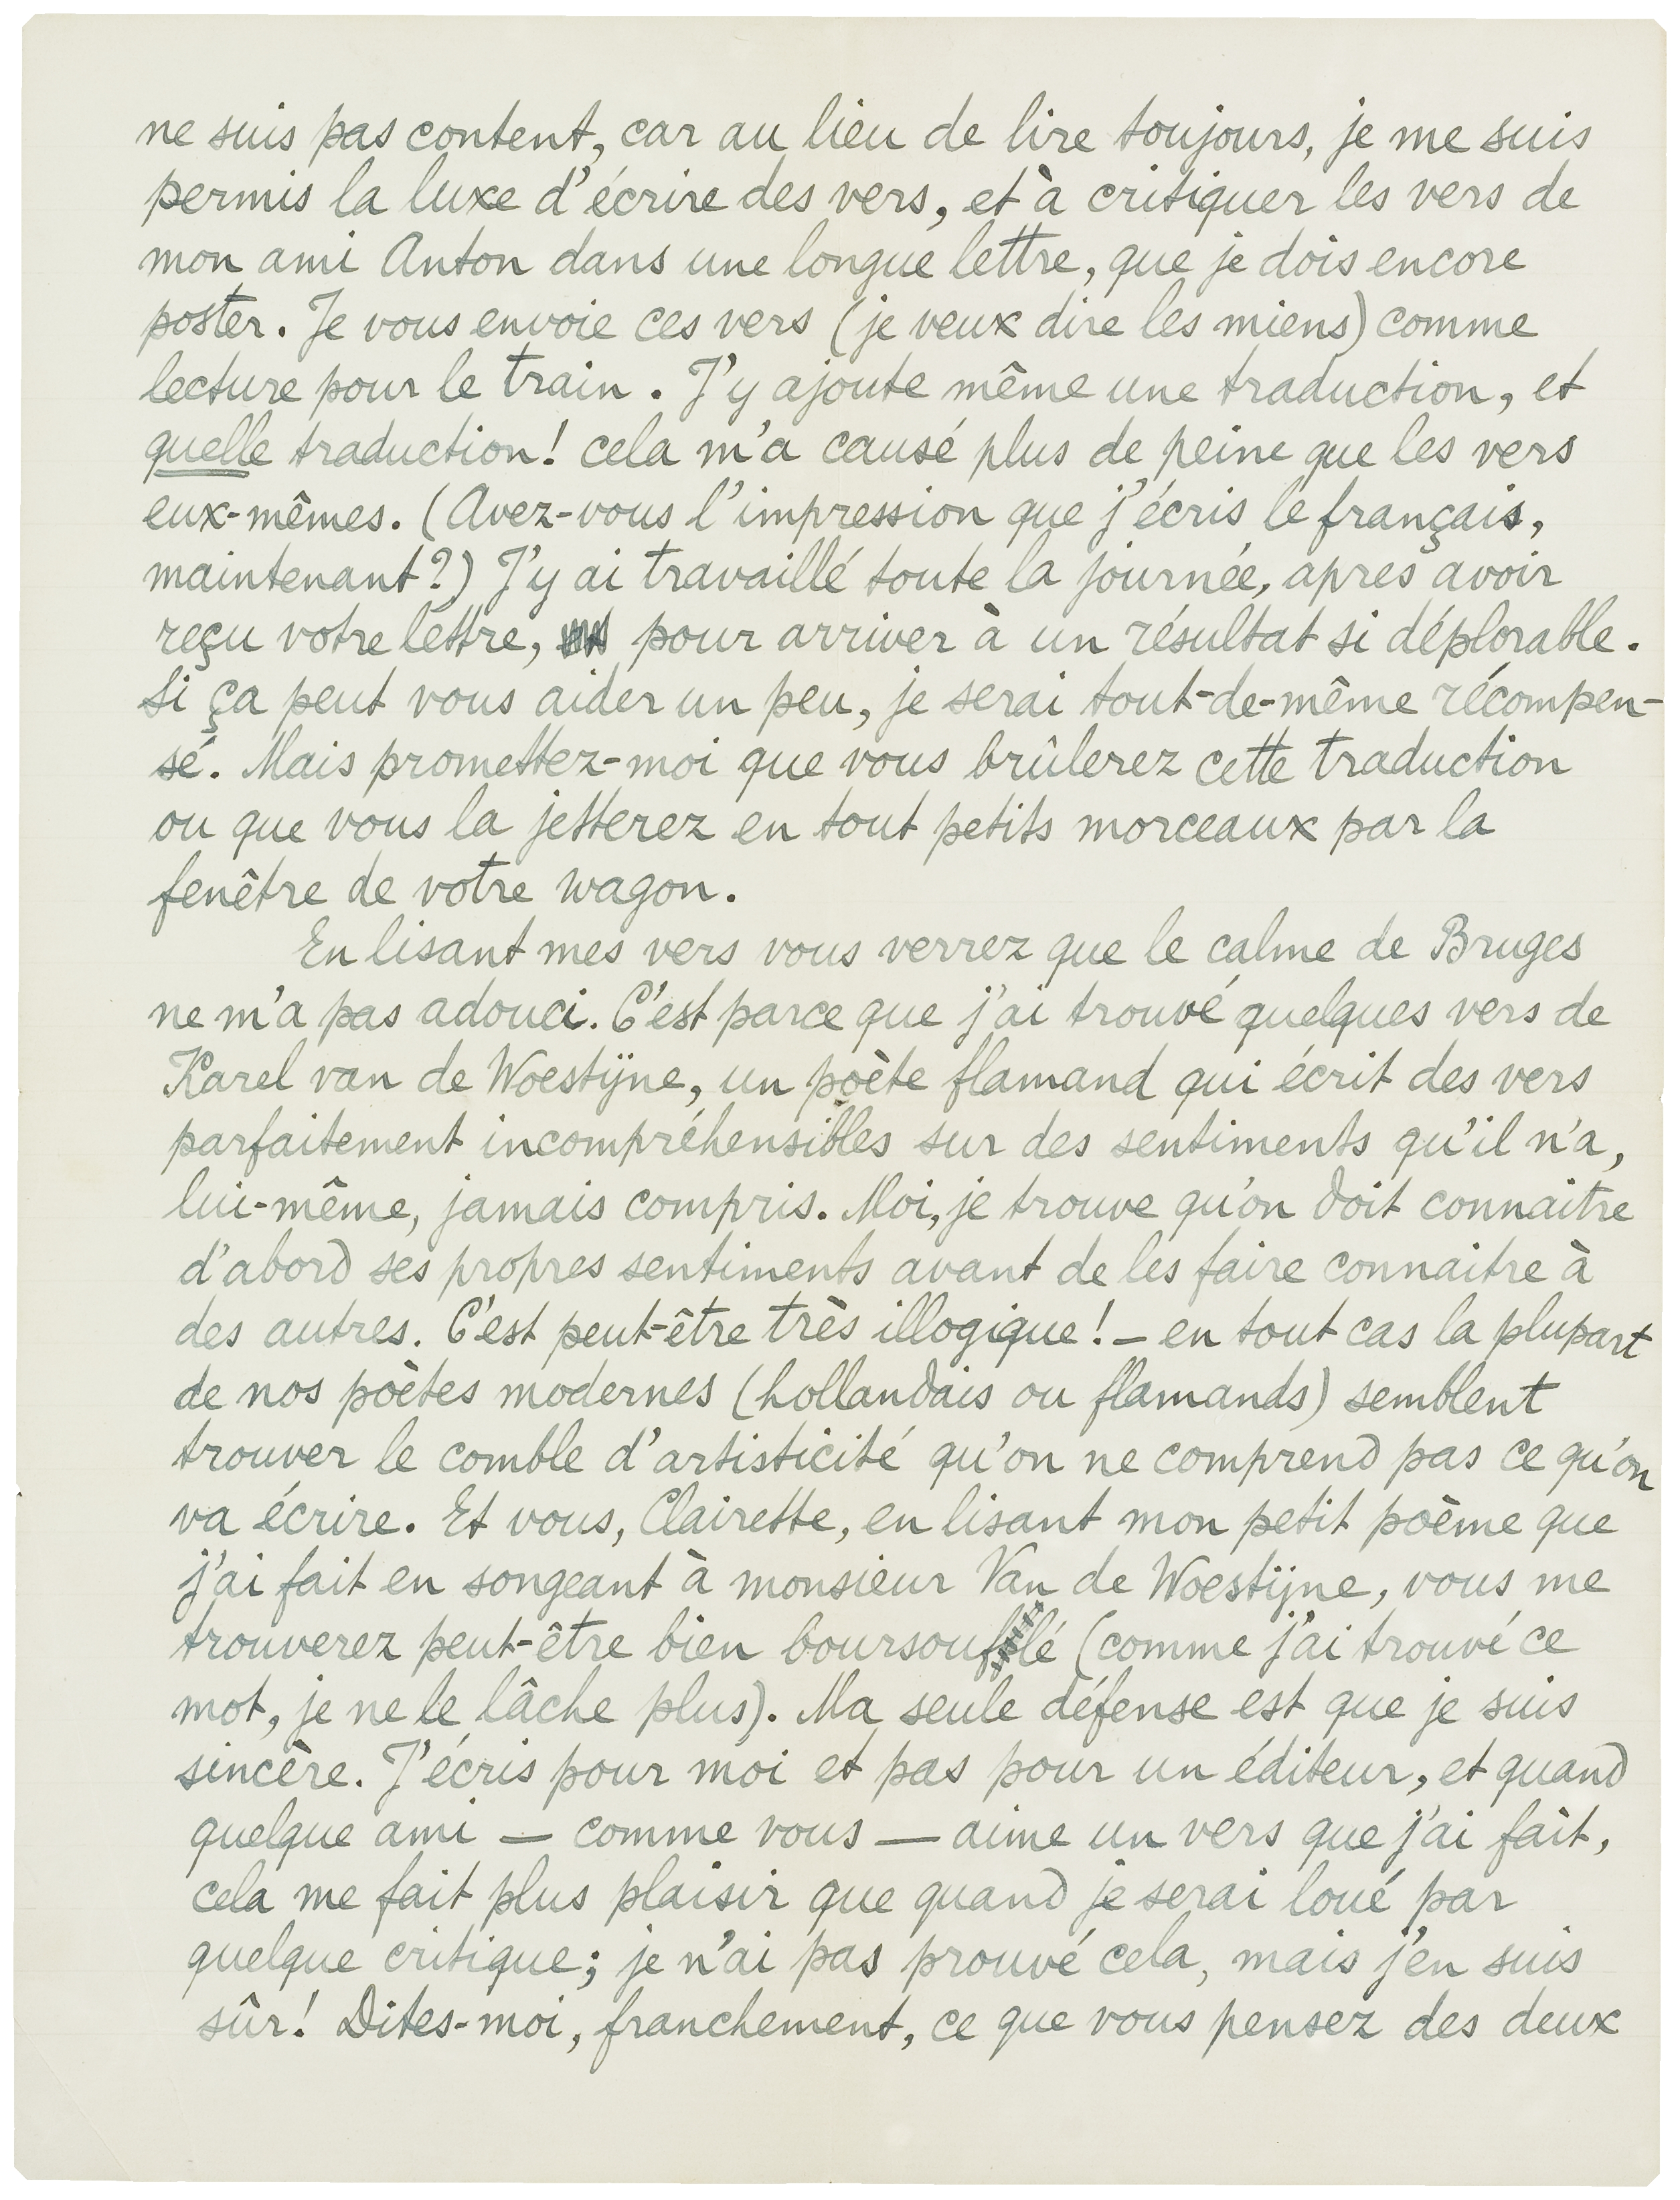 ne suis pas content, car au lieu de lire toujours, je me suis
permis la luxe d'écrire des vers, et à critiquer les vers de
mon ami Anton dans une longue lettre, que je dois encore
poster. Je vous envoie ces vers (je veux dire les miens) comme
lecture pour le train. J'y ajoute même une traduction, et
quelle traduction! cela m'a causé plus de peine que les vers
eux-mêmes. (Avez-vous l'impression que j'écris le français,
maintenant?) J'y ai travaillé toute la journée, apres avoir
reçu votre lettre, pour arriver à un résultat si déplorable.
Si ça peut vous aider un peu, je serai tout-de-même récompen-
sé. Mais promettez-moi que vous brûlerez cette traduction
ou que vous la jetterez en tout petits morceaux par la
fenêtre de votre wagon.
En lisant mes vers vous verrez que le calme de Bruges
ne m'a pas adouci. C'est parce que j'ai trouvé quelques vers de
Karel van de Woestijne, un poète flamand qui écrit des vers
parfaitement incompréhensibles sur des sentiments qu'il n'a,
lui-même, jamais compris. Moi, je trouve qu'on doit connaitre
d'abord ses propres sentiments avant de les faire connaitre à
des autres. C'est peut-être très illogique! — en tout cas la plupart
de nos poètes modernes (hollandais ou flamands) semblent
trouver le comble d'artisticité qu'on ne comprend pas ce qu'on
va écrire. Et vous, Clairette, en lisant mon petit poème que
j'ai fait en songeant à monsieur Van de Woestijne, vous me
trouverez peut-être bien boursouflé (comme j'ai trouvé ce
mot, je ne le lâche plus). Ma seule défense est que je suis
sincère. J'écris pour moi et pas pour un éditeur, et quand
quelque ami — comme vous — aime un vers que j'ai fait,
cela me fait plus plaisir que quand je serai loué par
quelque critique; je n'ai pas prouvé cela, mais j'en suis
sûr! Dites-moi, franchement, ce que vous pensez des deux